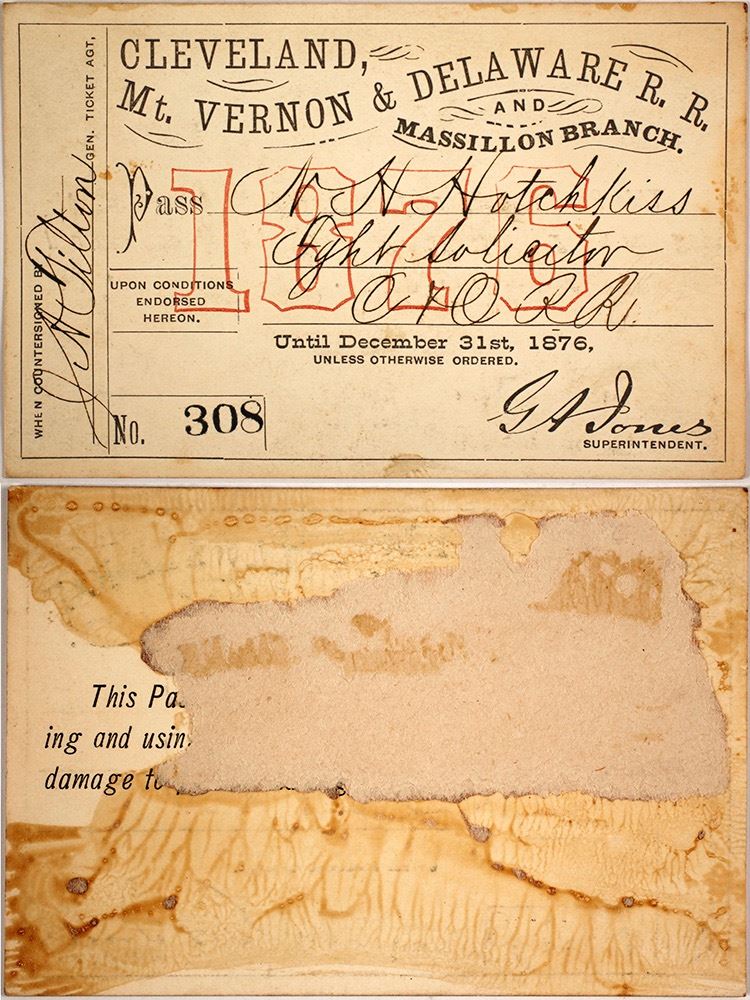 CLEVELAND,
Mt. VERNON & DELAWARE R. R.
AND
MASSILLON BRANCH.
1876
Pass N H Hotchkiss
Fght Solicitor
C & O R R.
UPON CONDITIONS
ENDORSED
HEREON.
Until December 31st, 1876,
UNLESS OTHERWISE ORDERED.
No. 308
G A Jones
SUPERINTENDENT.
WHEN COUNTERSIGNED BY
J A Tilton GEN. TICKET AGT,
This Pa
ing and usin
damage to